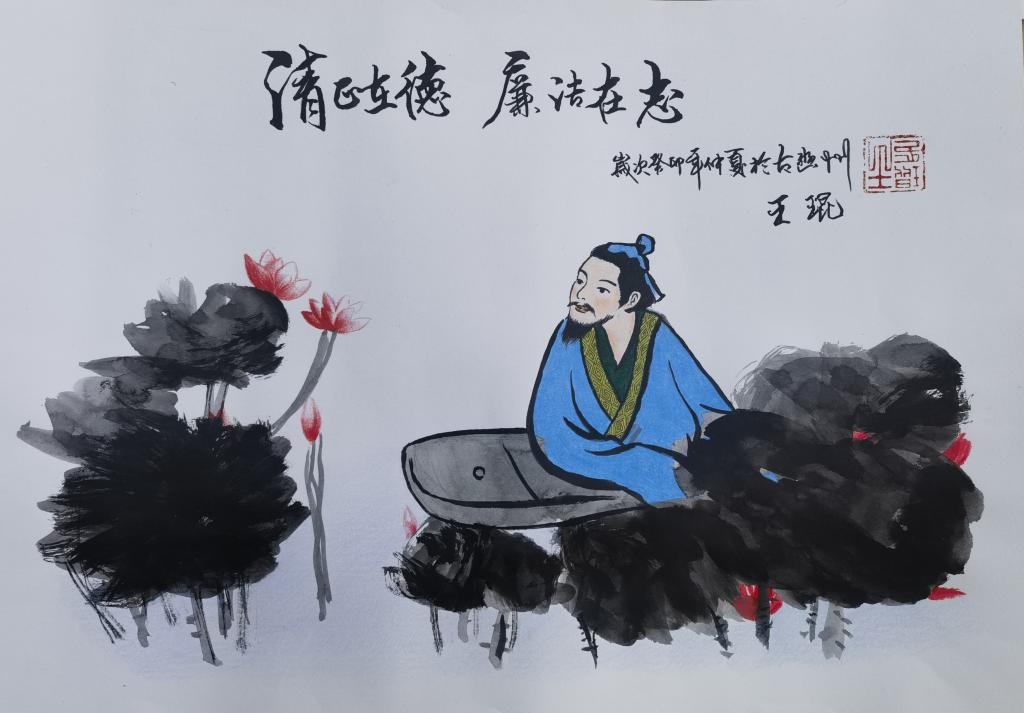 清正在德 廉洁在志
歲次癸卯年仲夏於古幽州
王琨